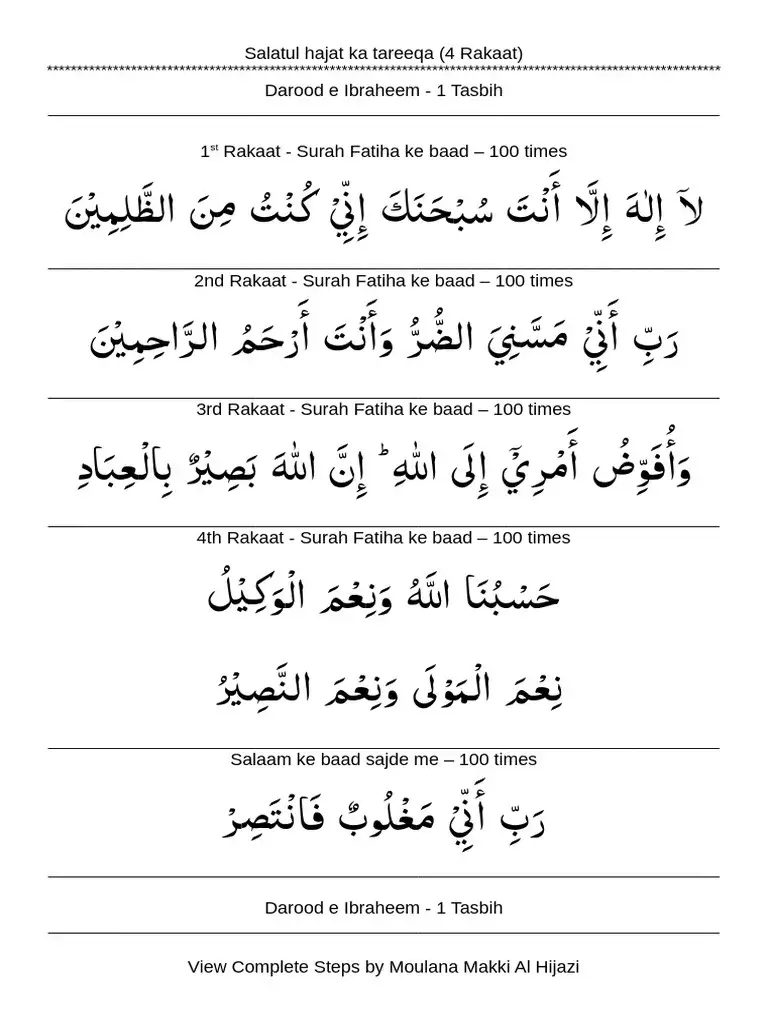 Salatul hajat ka tareeqa (4 Rakaat)
****************************************************************************************************************
Darood e Ibraheem - 1 Tasbih
1st Rakaat - Surah Fatiha ke baad – 100 times
لَآ إِلٰهَ إِلَّا أَنْتَ سُبْحَنَكَ إِنِّيْ كُنْتُ مِنَ الظَّلِمِيْنَ
2nd Rakaat - Surah Fatiha ke baad – 100 times
رَبِّ أَنِّيْ مَسَّنِيَ الضُّرُّ وَأَنْتَ أَرْحَمُ الرَّاحِمِيْنَ
3rd Rakaat - Surah Fatiha ke baad – 100 times
وَأُفَوِّضُ أَمْرِيْٓ إِلَى اللهِ ؕ إِنَّ اللهَ بَصِيْرٌ بِالْعِبَادِ
4th Rakaat - Surah Fatiha ke baad – 100 times
حَسْبُنَا اللَّهُ وَنِعْمَ الْوَكِيْلُ
نِعْمَ الْمَوْلَى وَنِعْمَ النَّصِيْرُ
Salaam ke baad sajde me – 100 times
رَبِّ أَنِّيْ مَغْلُوبٌ فَانْتَصِرْ
Darood e Ibraheem - 1 Tasbih
View Complete Steps by Moulana Makki Al Hijazi